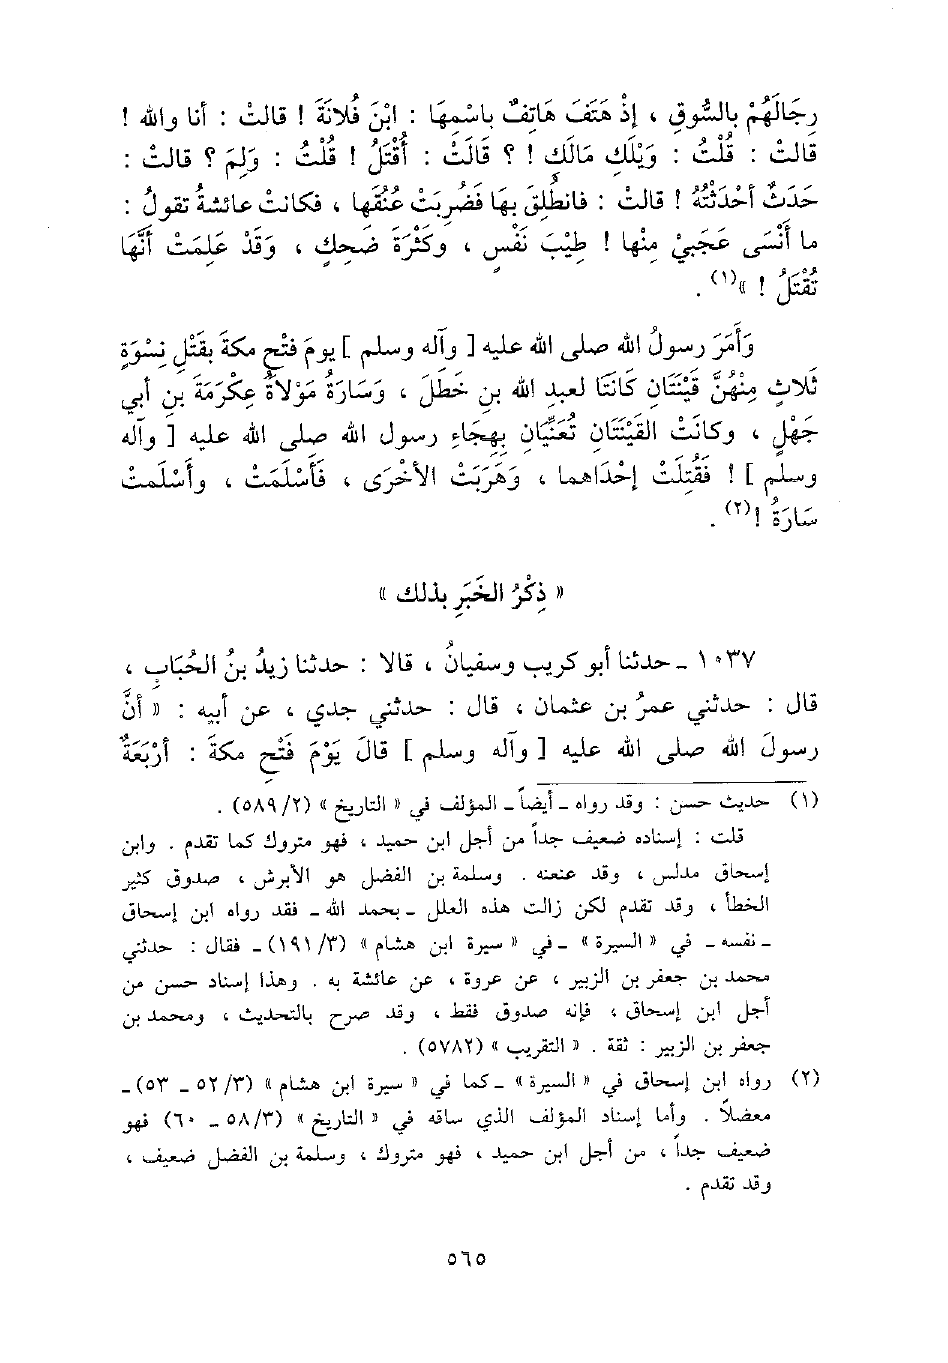 رِجَالَهُمْ بِالسُّوقِ ، إِذْ هَتَفَ هَاتِفٌ بِاسْمِهَا : ابْنَ فُلَانَةَ ! قالتْ : أنا والله !
قالتْ : قُلْتُ : وَيْلَكِ مَالَكِ ! ؟ قَالَتْ : أُقْتَلُ ! قُلْتُ : وَلِمَ ؟ قالتْ :
حَدَثٌ أَحْدَثْتُهُ ! قالتْ : فانطُلِقَ بِهَا فَضُرِبَتْ عُنُقُها ، فكانتْ عائشةُ تقولُ :
ما أَنْسَى عَجَبِيْ مِنْها ! طِيْبَ نَفْسٍ ، وكَثْرَةَ ضَحِكٍ ، وَقَدْ عَلِمَتْ أَنَّهَا
تُقْتَلُ ! »(١) .
وَأَمَرَ رسولُ الله صلى الله عليه [ وآله وسلم ] يومَ فتْحِ مكةَ بِقَتْلِ نِسْوَةٍ
ثَلاثٍ مِنْهُنَّ قَيْنَتَانِ كَانَتَا لعبدِ الله بن خَطَلَ ، وَسَارَةُ مَوْلَاةُ عِكْرَمَةَ بنِ أبي
جَهْلٍ ، وكانَتْ القَيْنَتَانِ تُغَنِّيَانِ بِهِجَاءِ رسول الله صلى الله عليه [ وآله
وسلم ] ! فَقُتِلَتْ إِحْدَاهما ، وَهَرَبَتْ الأُخْرَى ، فَأَسْلَمَتْ ، وأَسْلَمتْ
سَارَةُ !(٢) .
« ذِكْرُ الخَبَرِ بذلك »
١٠٣٧ ـ حدثنا أبو كريب وسفيانُ ، قالا : حدثنا زيدُ بنُ الحُبَابِ ،
قال : حدثني عمرُ بن عثمان ، قال : حدثني جدي ، عن أبيه : « أنَّ
رسولَ الله صلى الله عليه [ وآله وسلم ] قالَ يَوْمَ فَتْحِ مكةَ : أَرْبَعَةٌ
(١) حديث حسن : وقد رواه ـ أيضاً ـ المؤلف في « التاريخ » (٥٨٩/٢) .
قلت : إسناده ضعيف جداً من أجل ابن حميد ، فهو متروك كما تقدم . وابن
إسحاق مدلس ، وقد عنعنه . وسلمة بن الفضل هو الأبرش ، صدوق كثير
الخطأ ، وقد تقدم لكن زالت هذه العلل ـ بحمد الله ـ فقد رواه ابن إسحاق
ـ نفسه ـ في « السيرة » ـ في « سيرة ابن هشام » (١٩١/٣) ـ فقال : حدثني
محمد بن جعفر بن الزبير ، عن عروة ، عن عائشة به . وهذا إسناد حسن من
أجل ابن إسحاق ، فإنه صدوق فقط ، وقد صرح بالتحديث ، ومحمد بن
جعفر بن الزبير : ثقة . « التقريب » (٥٧٨٢) .
(٢) رواه ابن إسحاق في « السيرة » ـ كما في « سيرة ابن هشام » (٥٢/٣ ـ ٥٣) ـ
معضلاً . وأما إسناد المؤلف الذي ساقه في « التاريخ » (٥٨/٣ ـ ٦٠) فهو
ضعيف جداً ، من أجل ابن حميد ، فهو متروك ، وسلمة بن الفضل ضعيف ،
وقد تقدم .
٥٦٥